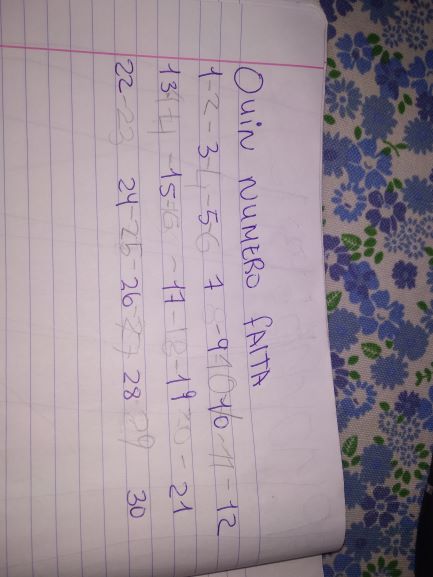 Quin NUMERO FALTA
1-2-3 4-5 6 7 8-9 10 10-11-12
13 14-15-16-17-18-19 20-21
22-23 24-25-26-27 28 29 30